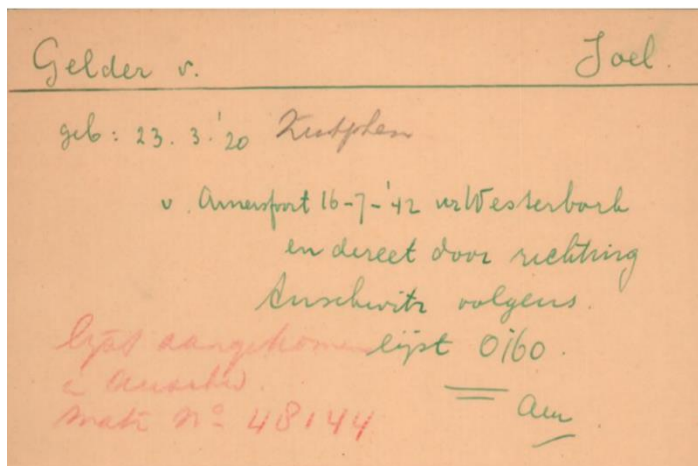 Gelder v. Joel.
geb: 23.3.'20 Zutphen
v. Amersfoort 16-7-'42 nr Westerbork
en direct door richting
Auschwitz volgens
lijst 0160.
lijst aangekomen
i. Auschw.
Matr. No 48144